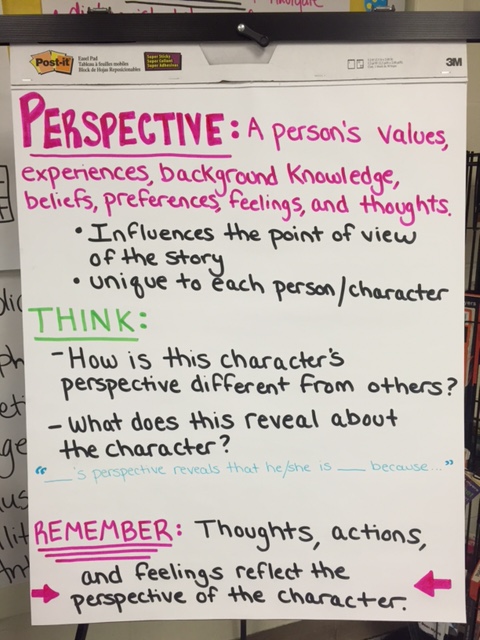 navigate
Post-it
Easel Pad
Tableau à feuilles mobiles
Block de Hojas Reposicionables
Super Sticky
3M
PERSPECTIVE: A person's values,
experiences, background knowledge,
beliefs, preferences, feelings, and thoughts.
• Influences the point of view
of the story
• unique to each person/character
THINK:
- How is this character's
perspective different from others?
- What does this reveal about
the character?
"___'s perspective reveals that he/she is ___ because..."
REMEMBER: Thoughts, actions,
and feelings reflect the
perspective of the character.